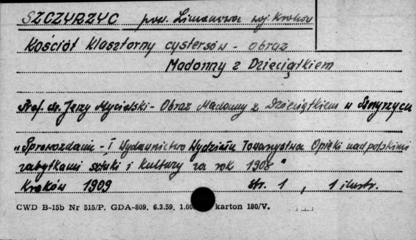 SZCZYRZYC pow. Limanowa woj. Kraków
Kościół klasztorny cystersów - obraz
Madonny z Dzieciątkiem
Prof. dr. Jerzy Mycielski - Obraz Madonny z Dzieciątkiem w Szczyrzycu
"Sprawozdanie - i Wydawnictwo Wydziału Towarzystwa Opieki nad polskimi
zabytkami sztuki i kultury za rok 1908"
Kraków 1909 str. 1, 1 ilustr.
CWD B-15b Nr 515/P. GDA-809, 6.3.59, 1.00 karton 180/V.